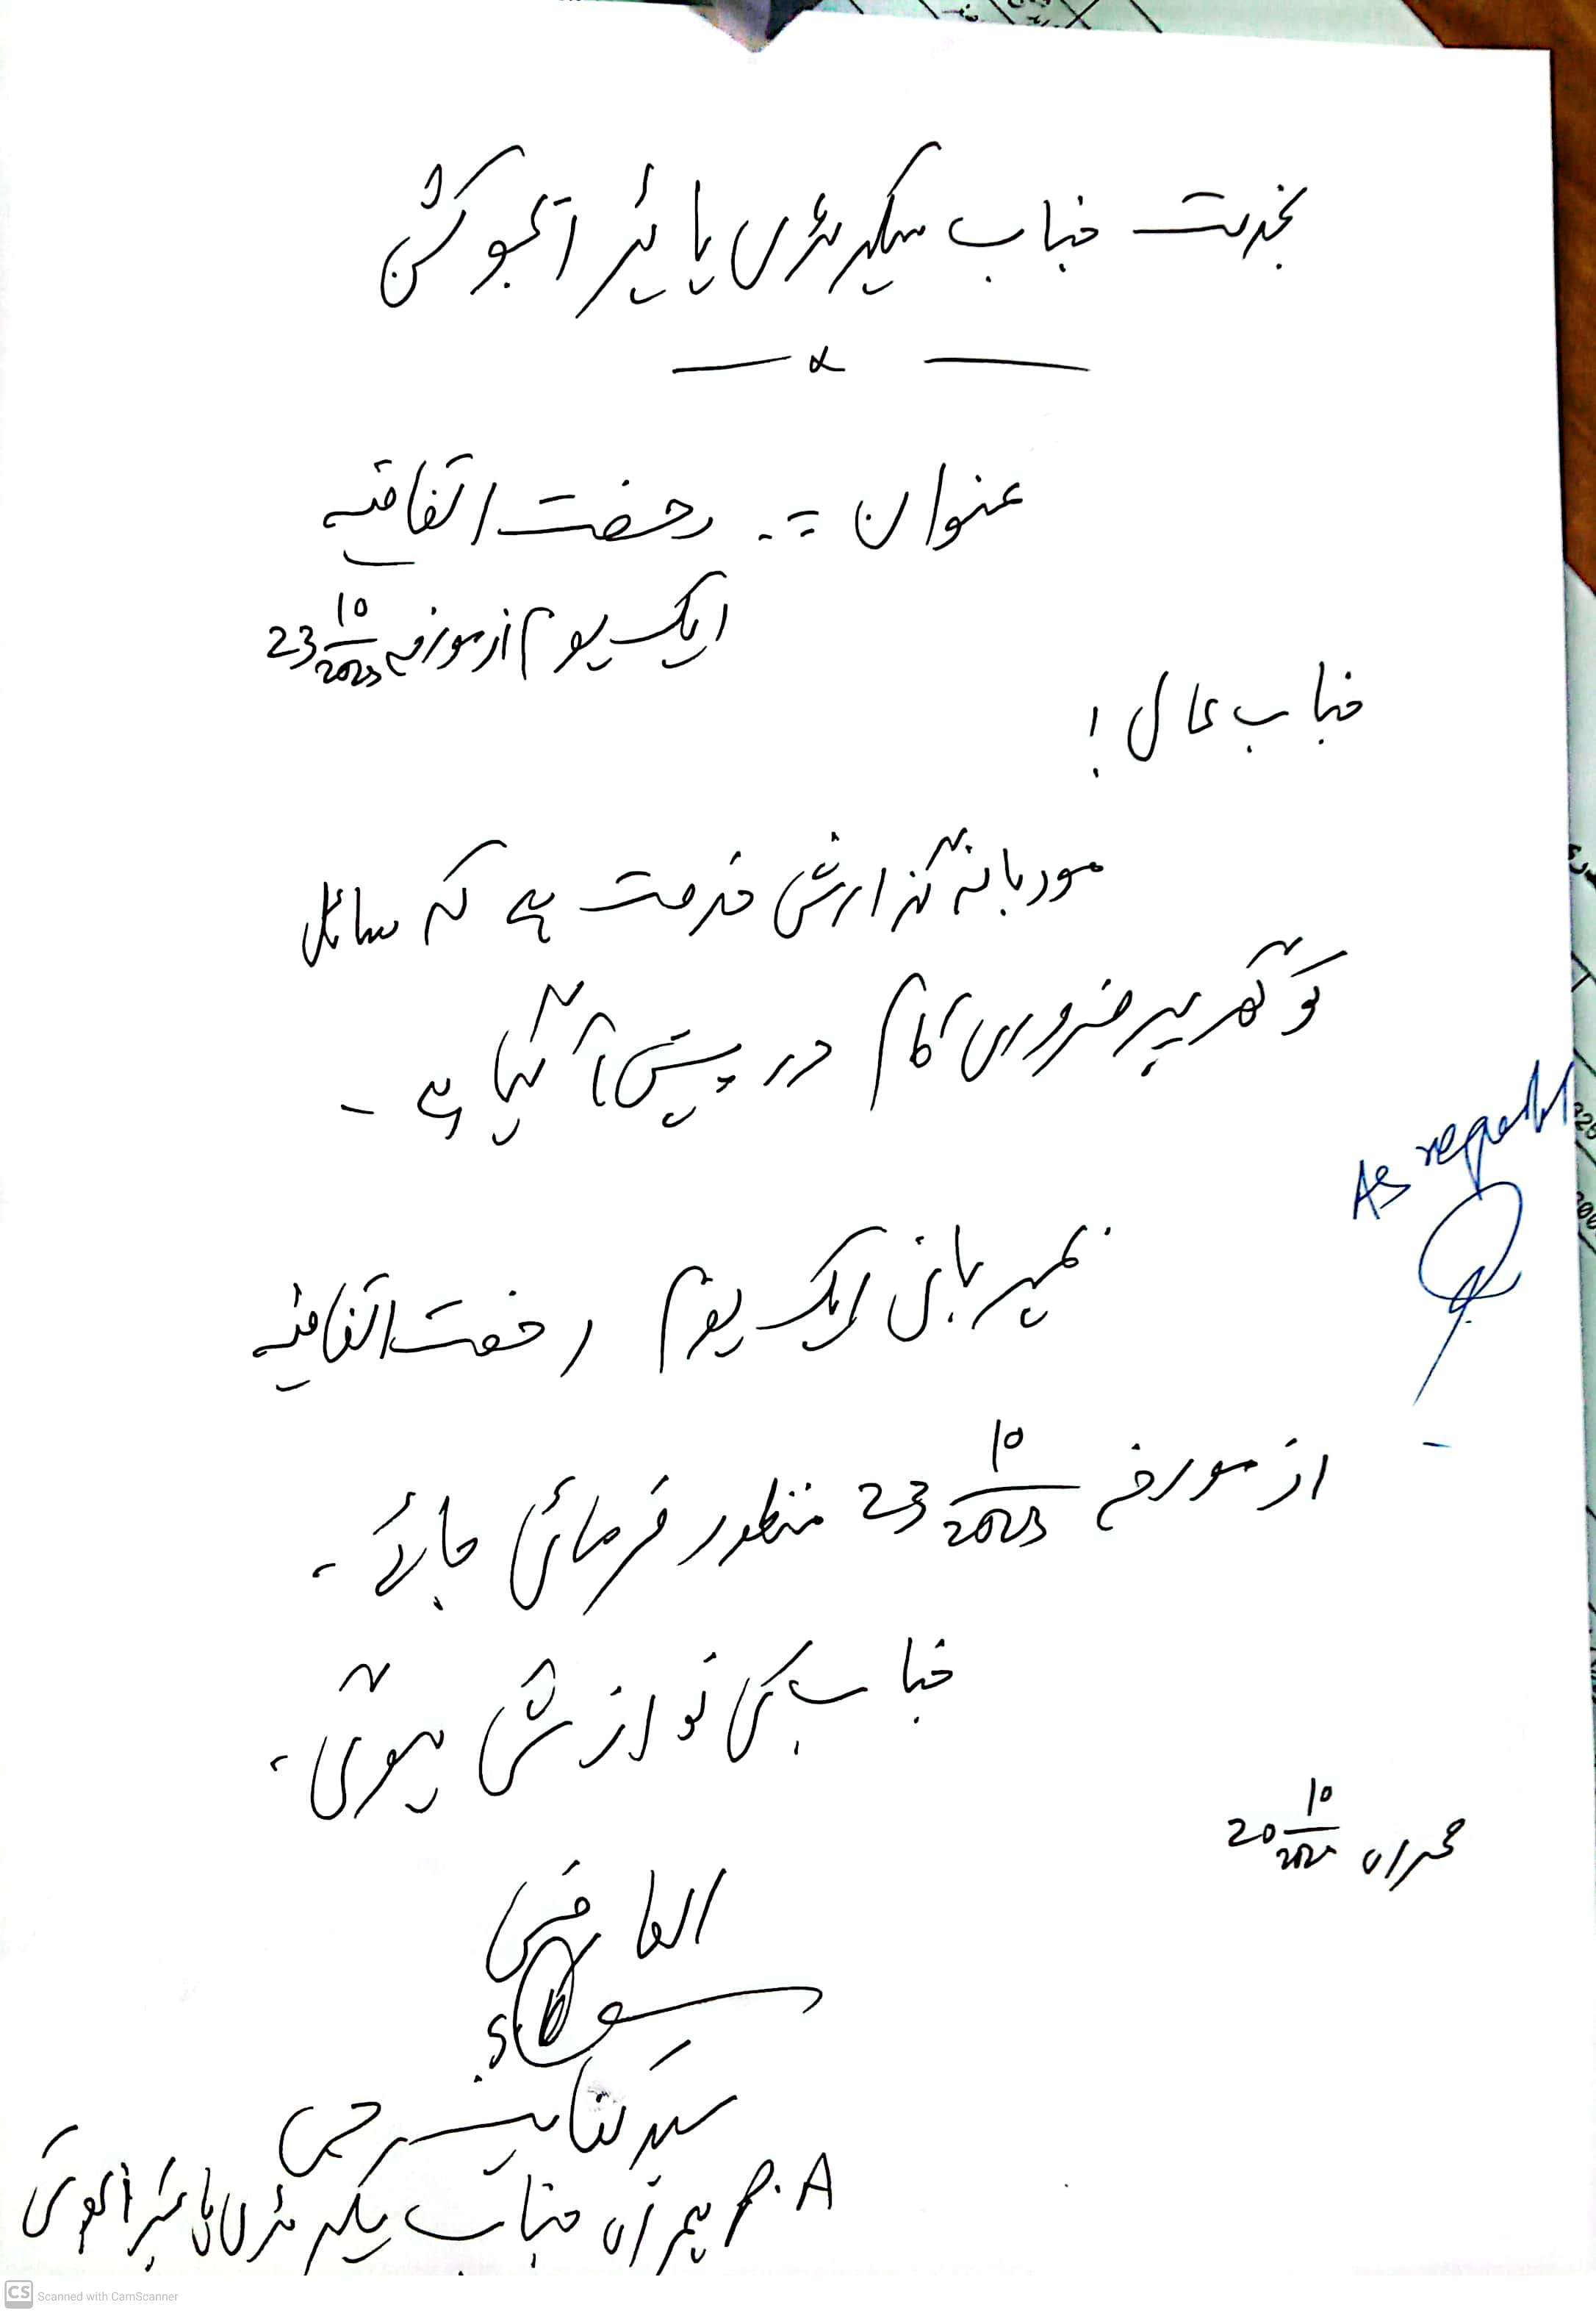 بخدمت جناب سیکریٹری ہائیر ایجوکیشن
عنوان :- رخصت اتفاقیہ
ایک یوم از مورخہ 23 10/2023
جناب عالی !
مودبانہ گزارش خدمت ہے کہ سائل
کو گھر پر ضروری کام درپیش آ گیا ہے -
As
بمہربانی ایک یوم رخصت اتفاقیہ
از مورخہ 23 10/2023 منظور فرمائی جائے -
جناب کی نوازش ہوگی -
20 10
العارضی
سید
P.A ہمراہ جناب سیکریٹری ہائیر ایجوکیشن
CS Scanned with CamScanner